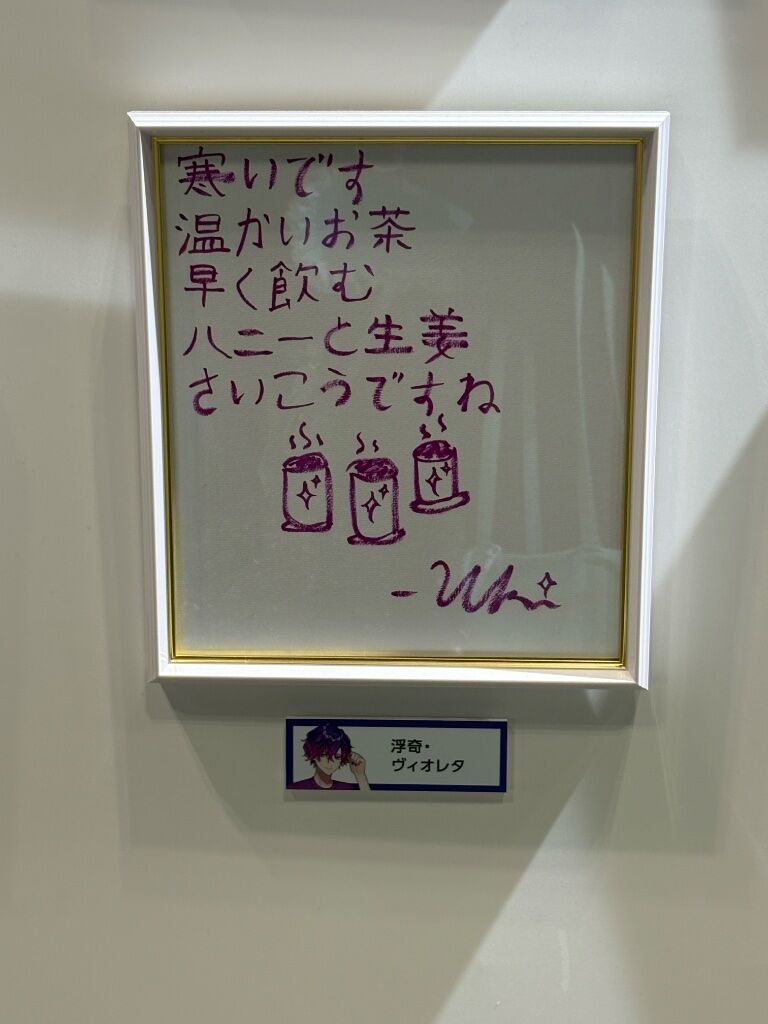 寒いです
温かいお茶
早く飲む
ハニーと生姜
さいこうですね
- Uki
浮奇・
ヴィオレタ